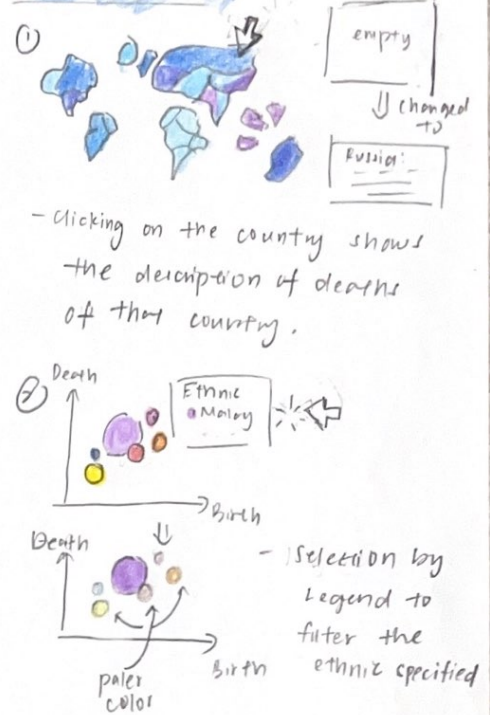 ①
empty
⇓ changed
to
Russia:
- Clicking on the country shows
the description of deaths
of that country.
②
Death
Ethnic
Malay
Birth
⇓
Death
Birth
paler
color
- Selection by
Legend to
filter the
ethnic specified